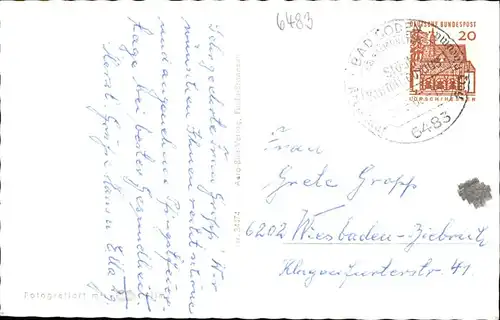 6483
DEUTSCHE BUNDESPOST
20
LORSCH/HESSEN
BAD SODEN
6483
Sehr geehrte Frau Gropp! Wir
wünschen Ihnen recht schöne
und angenehme Pfingstfeier-
tage bei bester Gesundheit.
Herzl. Grüße Hans u. Ella
Fotografiert mit
Frau
Grete Gropp
6202 Wiesbaden-Biebrich
Klagenfurterstr. 41